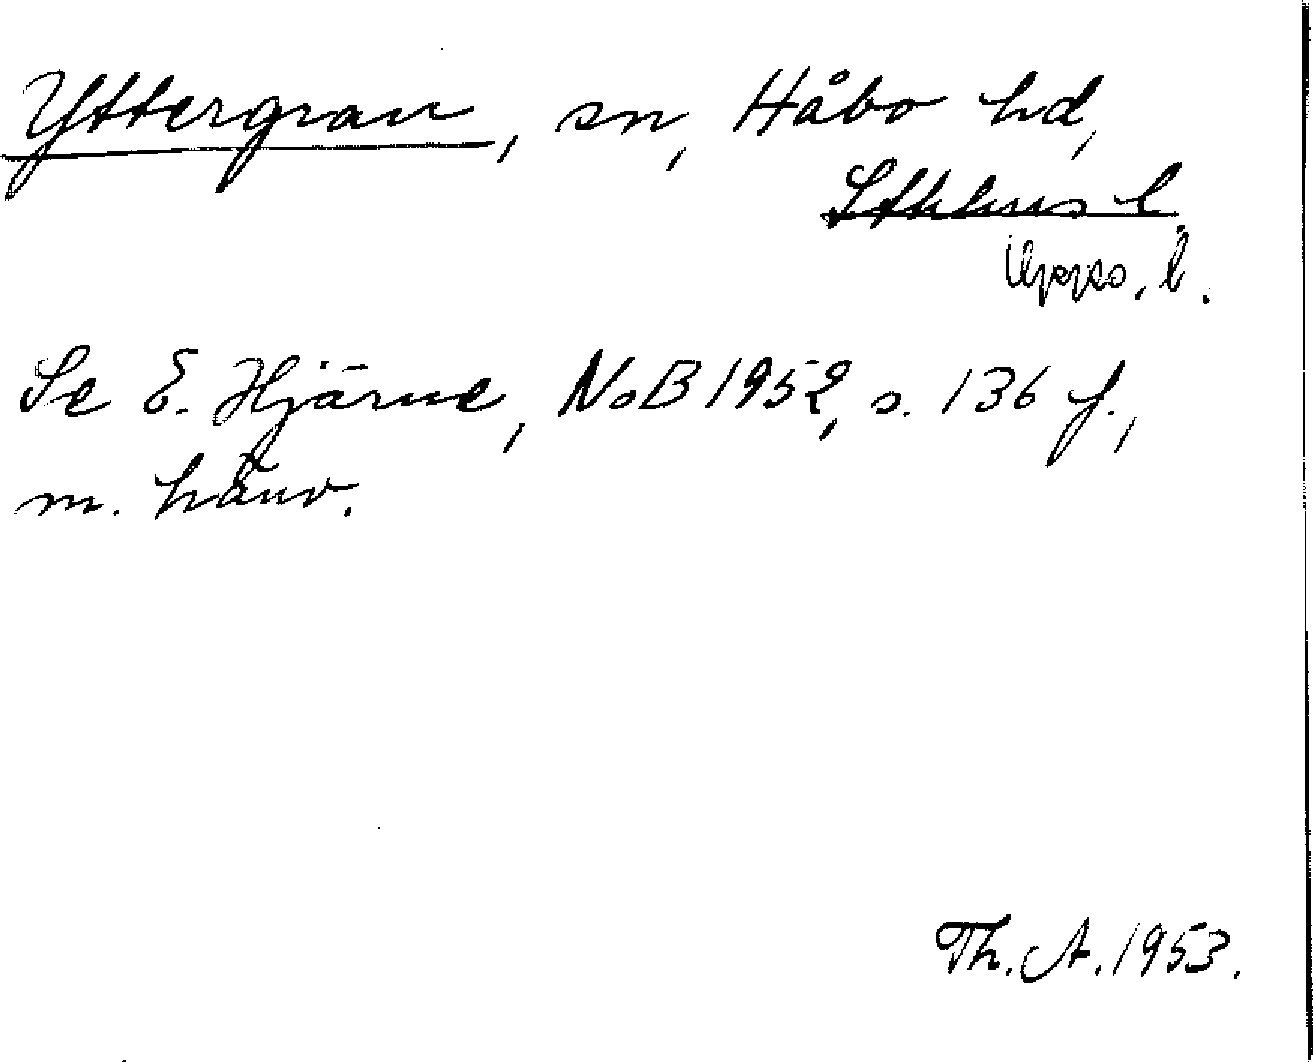 Yttergran, sn, Håbo hd,
Sthlms l.
Upps. l.
Se E. Hjärne, NoB 1952, s. 136 f.,
m. hänv.
Th. A. 1953.